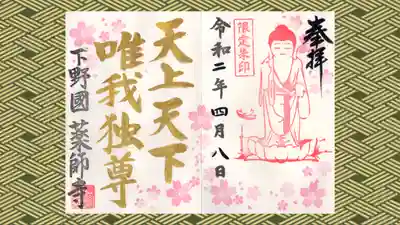 奉拝
限定朱印
令和二年四月八日
天上天下
唯我独尊
下野國 薬師寺